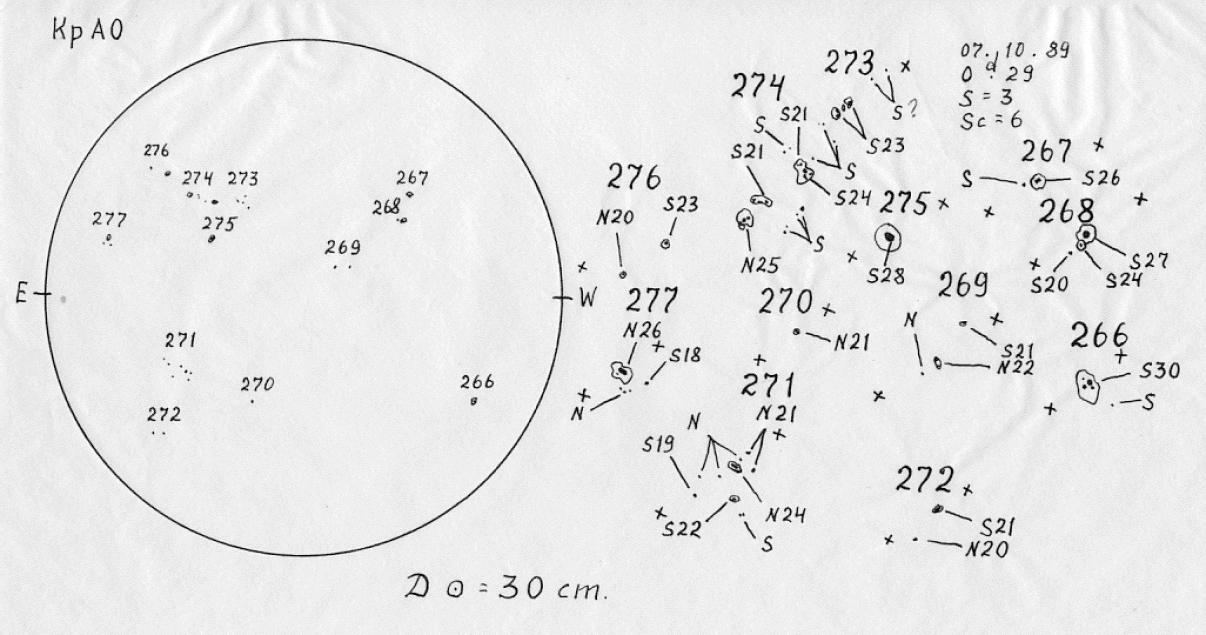 КрАО
276
274 273
277
275
267
268
269
E
W
271
270
272
266
D ⊙ = 30 cm.
07.10.89
S = 3
Sc = 6
273
S?
S23
274
S
S21
S
S24
S21
N25
S
275
S28
267
S
S26
268
S27
S20
S24
276
N20
S23
277
N26
S18
N
270
N21
269
N
S21
N22
266
S30
S
271
N
N21
S19
S22
N24
S
272
S21
N20